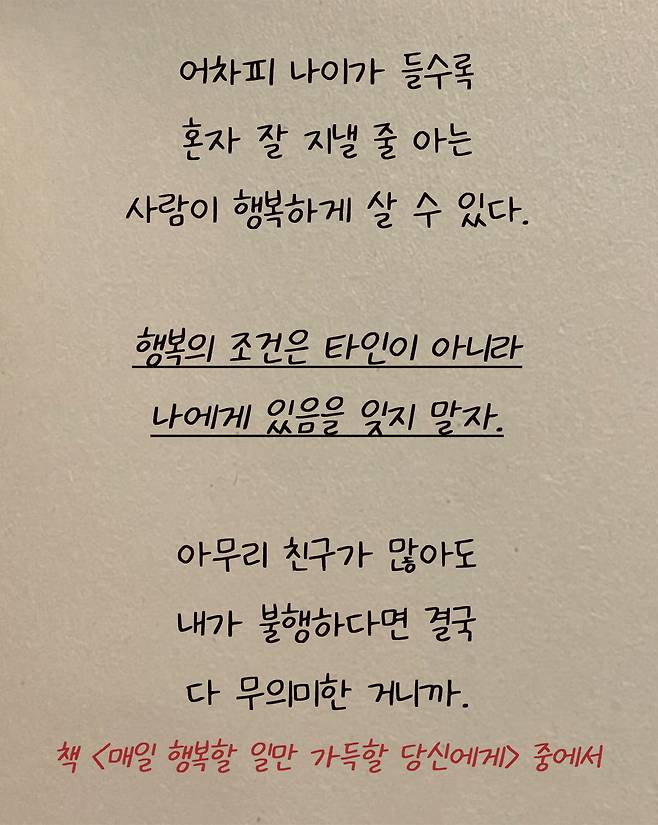 어차피 나이가 들수록
혼자 잘 지낼 줄 아는
사람이 행복하게 살 수 있다.
행복의 조건은 타인이 아니라
나에게 있음을 잊지 말자.
아무리 친구가 많아도
내가 불행하다면 결국
다 무의미한 거니까.
책 <매일 행복할 일만 가득할 당신에게> 중에서